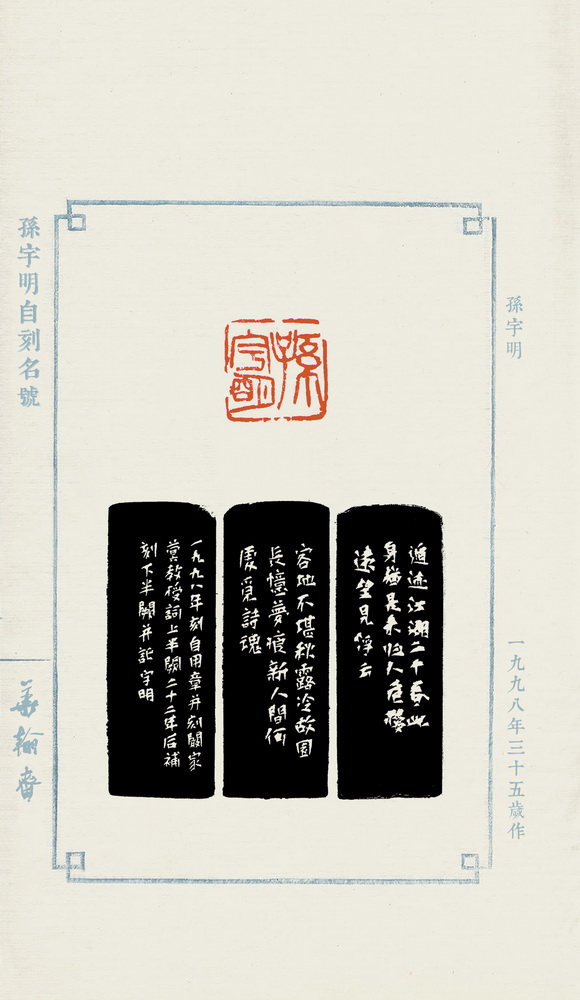 孫宇明
一九九八年三十五歲作
孫宇明
遁迹江湖二十春此
身猶是未归人危樓
遠望見浮云
客地不堪秋露冷故園
長憶夢痕新人間何
處覓詩魂
一九九八年刻自用章并刻關家
教授詞上半闋二十二年后補
刻下半闋并記宇明
孫宇明自刻名號